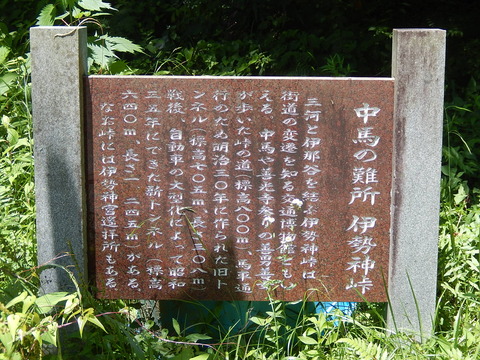 中馬の難所 伊勢神峠
三河と伊那谷を結ぶ伊勢神峠は
街道の変遷を知る交通博物館ともい
える。中馬や善光寺参りの善男善女
が歩いた峠の道(標高八〇〇m)馬車通
行のため明治三〇年に作られた旧ト
ンネル(標高七〇五m長さ三〇八m)
戦後、自動車の大型化によって昭和
三五年にできた新トンネル(標高
六四〇m 長さ一二四五m)がある。
なお峠には伊勢神宮遥拝所もある。